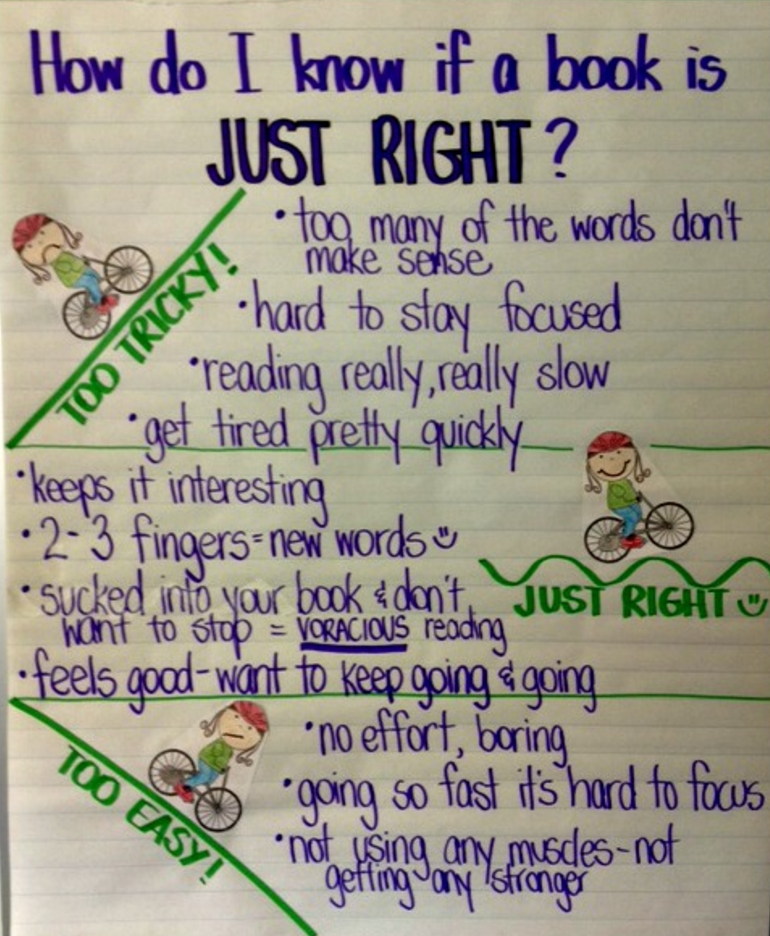 How do I know if a book is
JUST RIGHT?
TOO TRICKY!
• too many of the words don't
make sense
• hard to stay focused
• reading really, really slow
• get tired pretty quickly
• keeps it interesting
• 2-3 fingers = new words
• sucked into your book & don't
want to stop = VORACIOUS reading
• feels good - want to keep going & going
JUST RIGHT
TOO EASY!
• no effort, boring
• going so fast it's hard to focus
• not using any muscles - not
getting any stronger